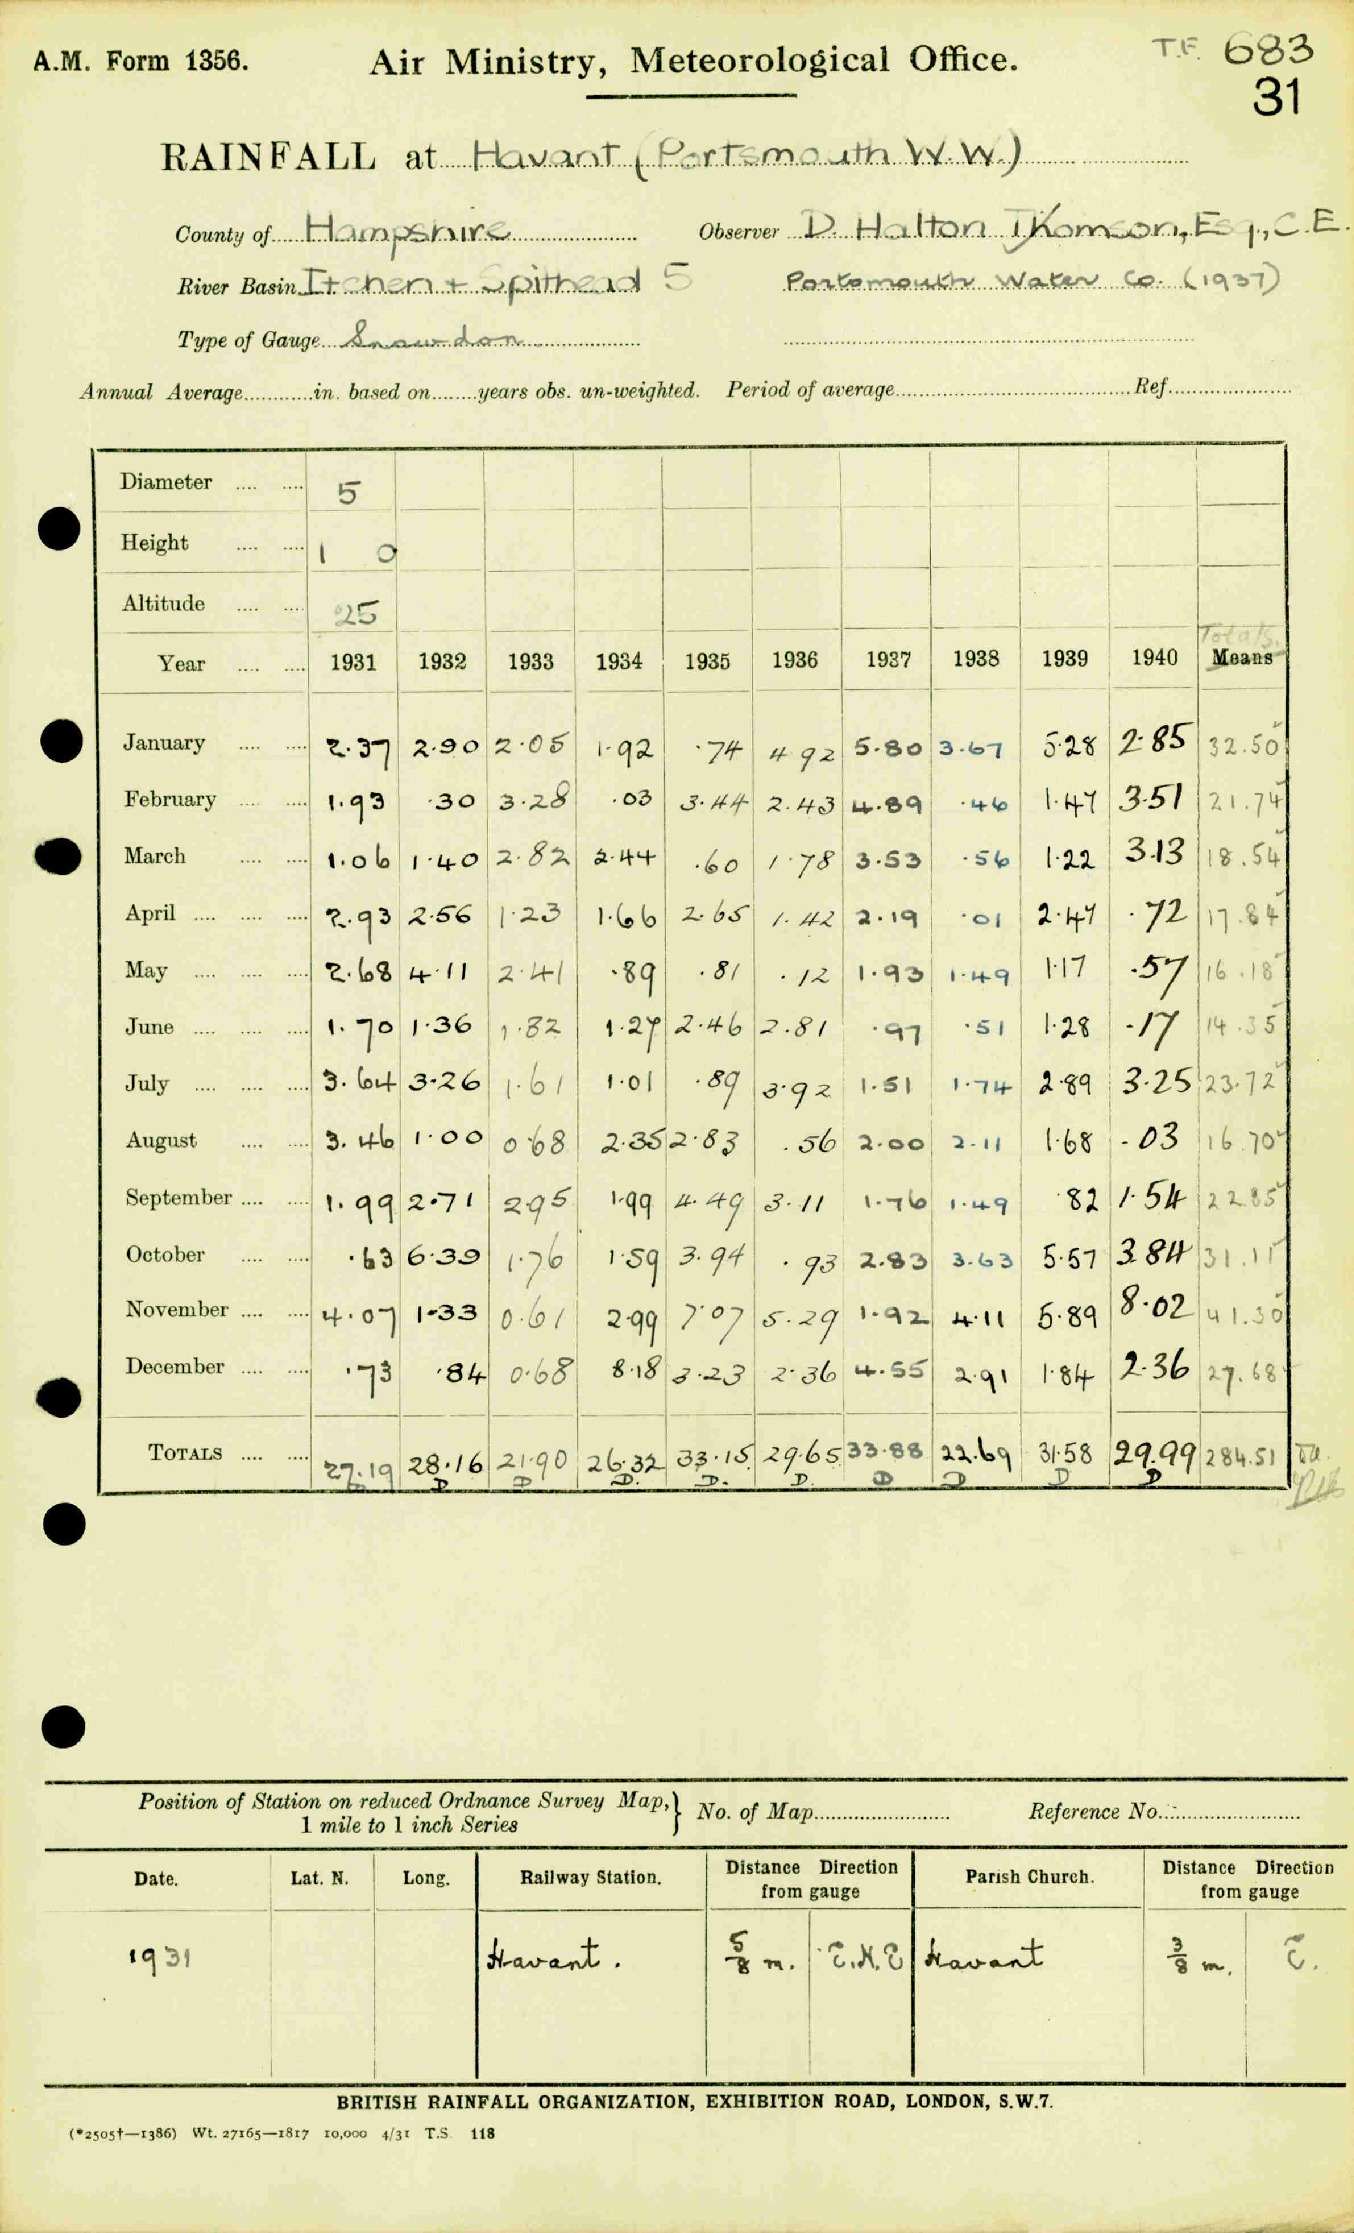 A.M. Form 1356. Air Ministry, Meteorological Office. T.F. 683
31
RAINFALL at Havant (Portsmouth W.W.)
County of Hampshire Observer D. Halton Thomson, Esq., C.E.
River Basin Itchen + Spithead 5 Portsmouth Water Co. (1937)
Type of Gauge Snowdon
Annual Average in. based on years obs. un-weighted. Period of average Ref.
Diameter 5
Height 1 0
Altitude 25
Totals.
Year 1931 1932 1933 1934 1935 1936 1937 1938 1939 1940 Means
January 2.37 2.90 2.05 1.92 .74 4.92 5.80 3.67 5.28 2.85 32.50
February 1.93 .30 3.28 .03 3.44 2.43 4.89 .46 1.47 3.51 21.74
March 1.06 1.40 2.82 2.44 .60 1.78 3.53 .56 1.22 3.13 18.54
April 2.93 2.56 1.23 1.66 2.65 1.42 2.19 .01 2.47 .72 17.84
May 2.68 4.11 2.41 .89 .81 .12 1.93 1.49 1.17 .57 16.18
June 1.70 1.36 1.82 1.27 2.46 2.81 .97 .51 1.28 .17 14.35
July 3.64 3.26 1.61 1.01 .89 3.92 1.51 1.74 2.89 3.25 23.72
August 3.46 1.00 0.68 2.35 2.83 .56 2.00 2.11 1.68 .03 16.70
September 1.99 2.71 2.95 1.99 4.49 3.11 1.76 1.49 .82 1.54 22.85
October .63 6.39 1.76 1.59 3.94 .93 2.83 3.63 5.57 3.84 31.11
November 4.07 1.33 0.61 2.99 7.07 5.29 1.92 4.11 5.89 8.02 41.30
December .73 .84 0.68 8.18 3.23 2.36 4.55 2.91 1.84 2.36 27.68
TOTALS 27.19 28.16 21.90 26.32 33.15 29.65 33.88 22.69 31.58 29.99 284.51
D D D D. D. D. D D D D
Position of Station on reduced Ordnance Survey Map, No. of Map Reference No.
1 mile to 1 inch Series
Date. Lat. N. Long. Railway Station. Distance Direction from gauge Parish Church. Distance Direction from gauge
1931 Havant. 5/8 m. E.N.E Havant 3/8 m. E.
BRITISH RAINFALL ORGANIZATION, EXHIBITION ROAD, LONDON, S.W.7.
(*2505†—1386) Wt. 27165—1817 10,000 4/31 T.S. 118